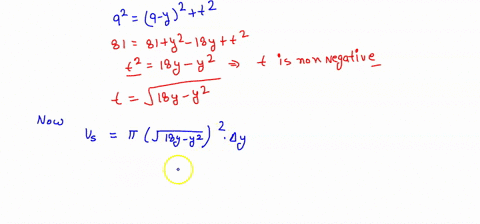 9² = (9-y)² + t²
81 = 81 + y² - 18y + t²
t² = 18y - y² ⇒ t is non negative
t = √(18y - y²)
Now
V_s = π (√(18y-y²))² · Δy